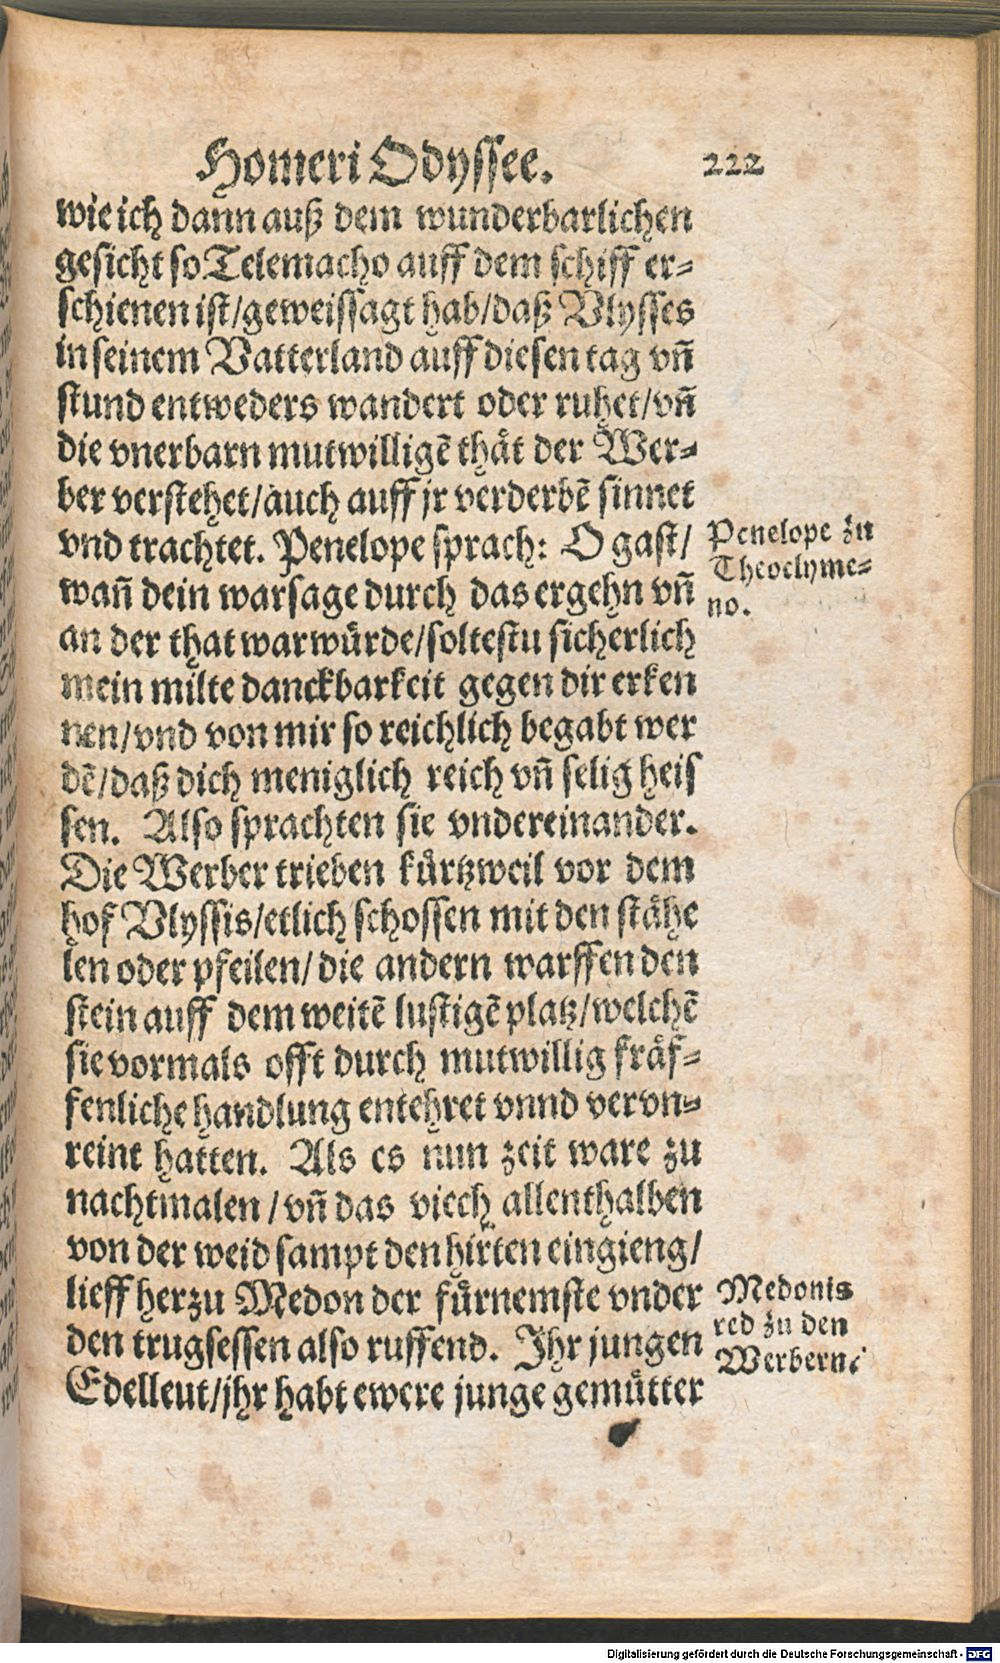 Homeri Odyssee. 222
wie ich dann auß dem wunderbarlichen
gesicht so Telemacho auff dem schiff er-
schienen ist/geweissagt hab/daß Vlysses
in seinem Vatterland auff diesen tag vñ
stund entweders wandert oder ruhet/vñ
die vnerbarn mutwilligẽ thåt der Wer-
ber verstehet/auch auff jr verderbẽ sinnet
vnd trachtet. Penelope sprach: O gast/
Penelope zu
Theoclyme-
no.
wañ dein warsage durch das ergehn vñ
an der that war würde/soltestu sicherlich
mein milte danckbarkeit gegen dir erken
nen/vnd von mir so reichlich begabt wer
dẽ/daß dich meniglich reich vñ selig heis
sen. Also sprachten sie vndereinander.
Die Werber trieben kůrtzweil vor dem
hof Vlyssis/etlich schossen mit den ståhe
len oder pfeilen/die andern warffen den
stein auff dem weitẽ lustigẽ platz/welchẽ
sie vormals offt durch mutwillig fråf-
fenliche handlung entehret vnnd vervn-
reint hatten. Als es nun zeit ware zu
nachtmalen/vñ das viech allenthalben
von der weid sampt den hirten eingieng/
lieff herzu Medon der fůrnemste vnder
den trugsessen also ruffend. Ihr jungen
Edelleut/jhr habt ewere junge gemůtter
Medonis
red zu den
Werbern.
Digitalisierung gefördert durch die Deutsche Forschungsgemeinschaft - DFG